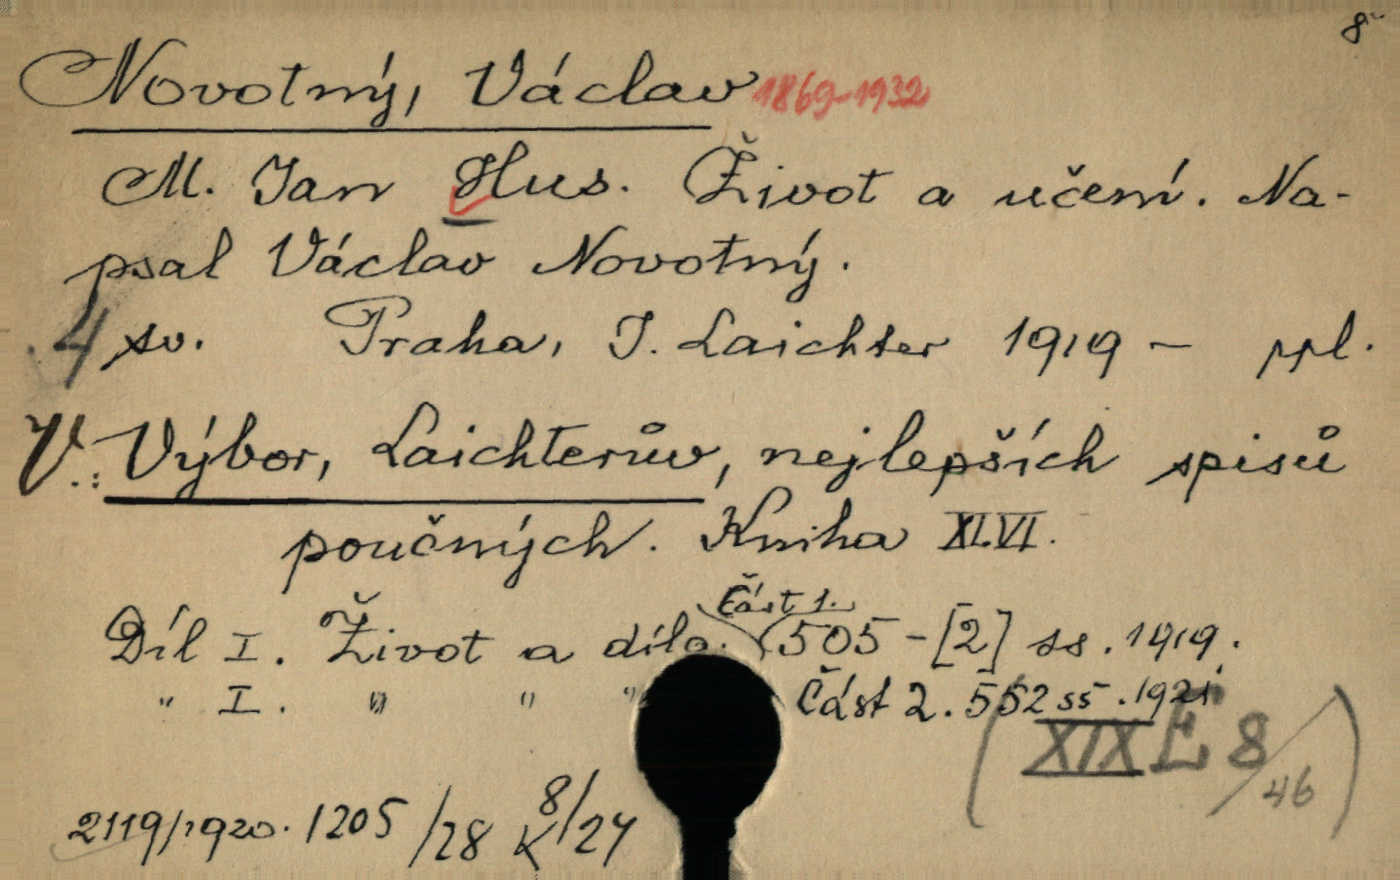 8°
Novotný, Václav 1869-1932
M. Jan Hus. Život a učení. Na-
psal Václav Novotný.
4 sv. Praha, J. Laichter 1919 - ppl.
V.: Výbor, Laichterův, nejlepších spisů
poučných. Kniha XLVI.
Část 1.
Díl I. Život a dílo. 505-[2] ss. 1919.
" I. " " " Část 2. 552 ss. 1921
(XIX E 8/46)
2119/1920. 1205/28 K 8/24